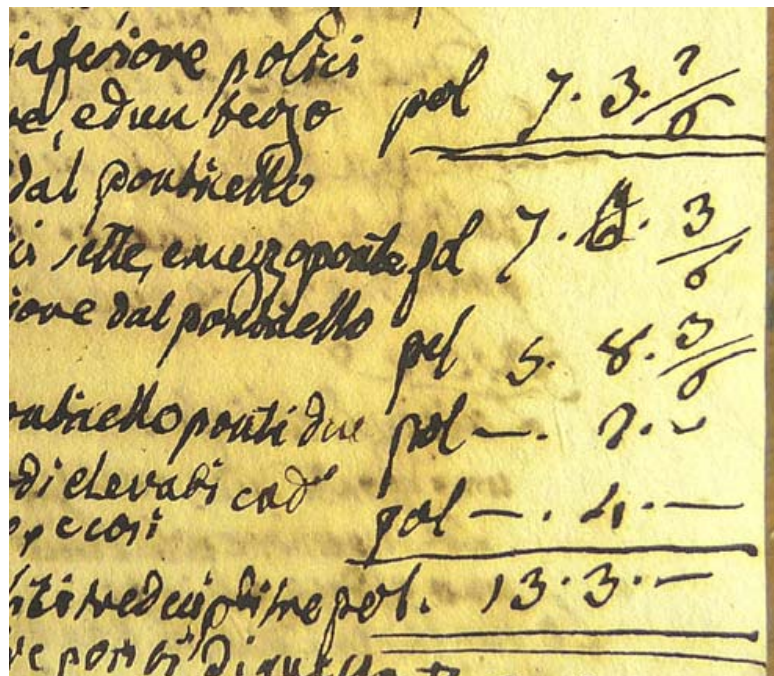 inferiore pollici
ve, ed un terzo pol 7. 3. 2/6
dal ponticello
ci sette, e mezzo ponto pol 7. 0. 3/6
iore dal ponticello pol 5. 8. 3/6
onticello ponti due pol —. 2. —
di elevati cad
cosi pol —. 4. —
tredeci pti tre pol. 13. 3. —
ponti di